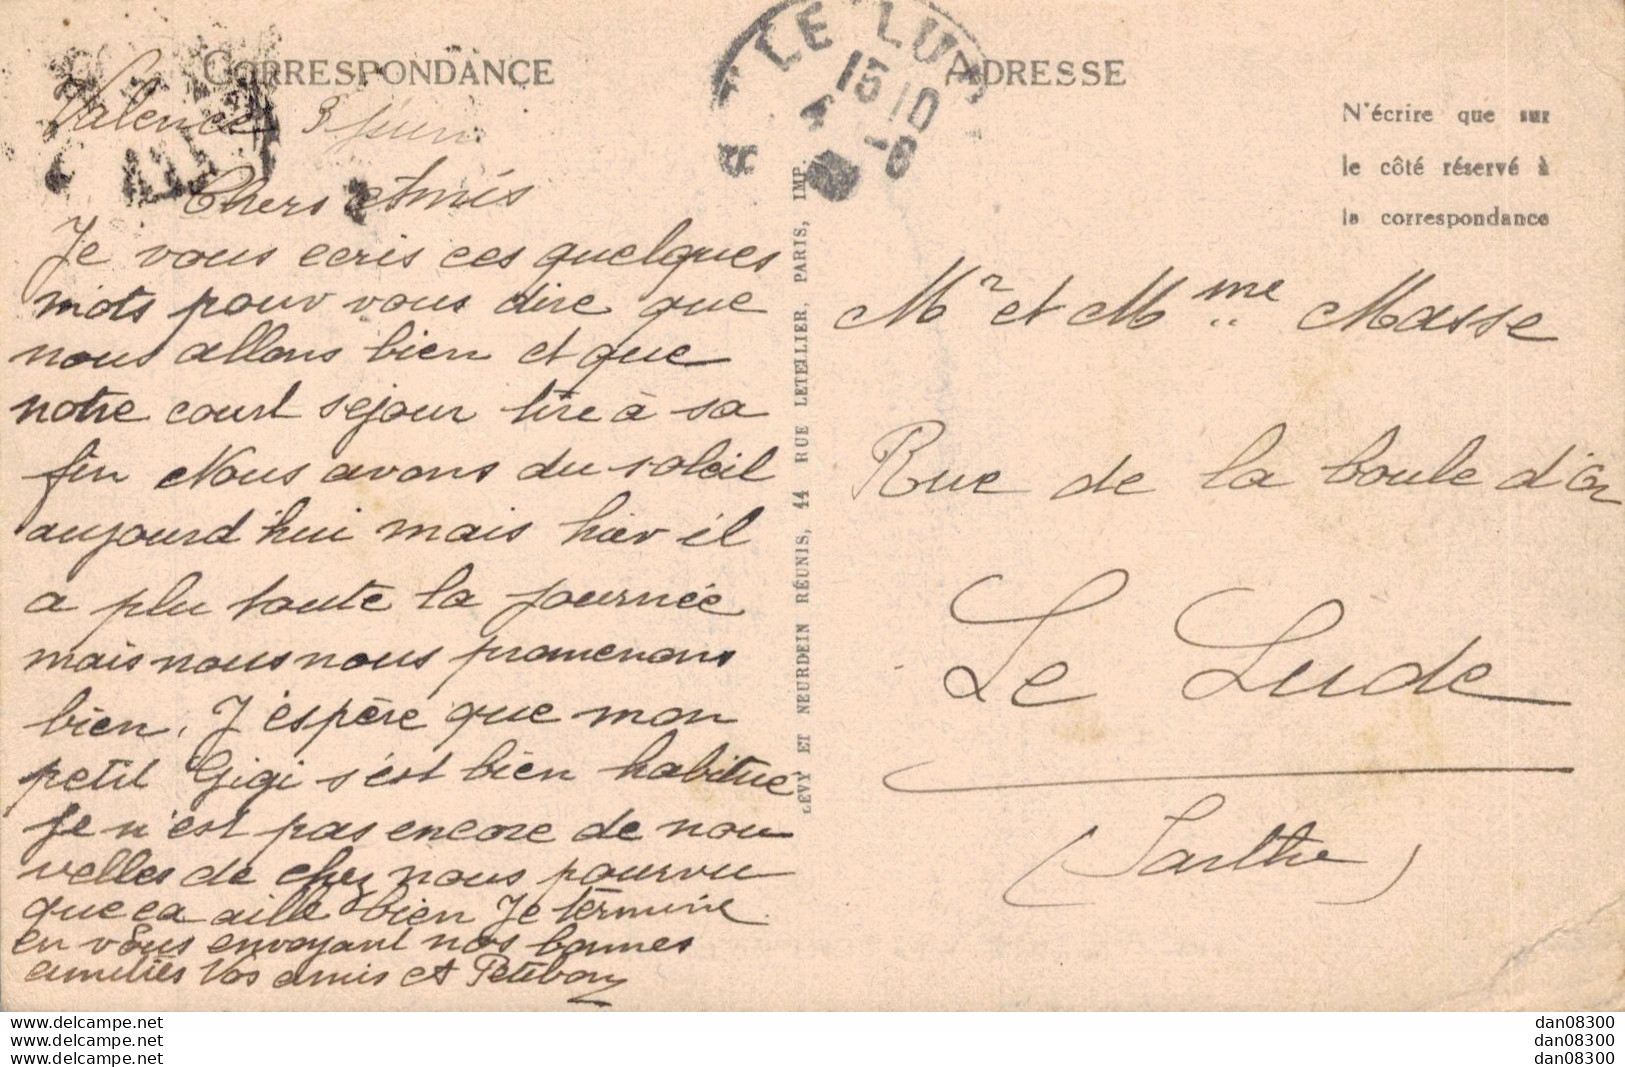 CORRESPONDANCE
ADRESSE
N'écrire que sur
le côté réservé à
la correspondance
LE LUDE
15 10
4 -6
Valence 3 juin
Chers Amis
Je vous ecris ces quelques
mots pour vous dire que
nous allons bien et que
notre court sejour tire à sa
fin Nous avons du soleil
aujourd'hui mais hier il
a plu toute la journée
mais nous nous promenons
bien. J'espère que mon
petit Gigi s'est bien habitué
Je n'est pas encore de nou
velles de chez nous pourvu
que ca aille bien Je termine
en vous envoyant nos bonnes
amitiés Vos amis A Petibon
LÉVY ET NEURDEIN RÉUNIS, 44 RUE LETELLIER, PARIS, IMP.
Mr et Mme Masse
Rue de la boule d'Or
Le Lude
(Sarthe)
www.delcampe.net
www.delcampe.net
www.delcampe.net
dan08300
dan08300
dan08300